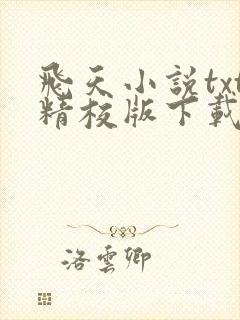 飛天小説txt
精校版下載
洛雲卿